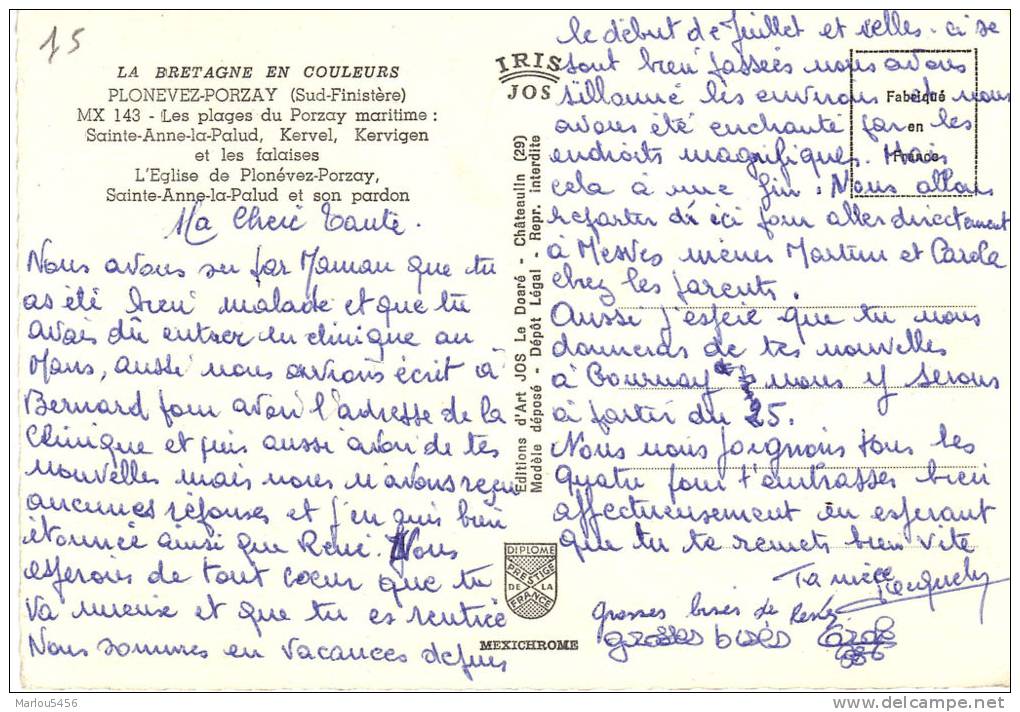 15
LA BRETAGNE EN COULEURS
PLONEVEZ-PORZAY (Sud-Finistère)
MX 143 - Les plages du Porzay maritime :
Sainte-Anne-la-Palud, Kervel, Kervigen
et les falaises
L'Eglise de Plonévez-Porzay,
Sainte-Anne-la-Palud et son pardon
Ma Cheri Tante.
Nous avons su par Maman que tu
as été bien malade et que tu
avais dû entrer en clinique au
Mans, aussi nous avions écrit à
Bernard pour avoir l'adresse de la
Clinique et puis aussi avoir de tes
nouvelles mais nous n'avons reçu
aucunes réponses et j'en suis bien
étonnée ainsi que René. Nous
espérons de tout coeur que tu
va mieux et que tu es rentrée
Nous sommes en vacances depuis
IRIS
JOS
Editions d'Art JOS Le Doaré - Châteaulin (29)
Modèle déposé - Dépôt Légal - Repr. interdite
DIPLOME
PRESTIGE
DE LA
FRANCE
MEXICHROME
Fabriqué
en
France
le début de Juillet et celles-ci se
sont bien passées nous avons
sillonné les environs et nous
avons été enchanté par les
endroits magnifiques. Mais
cela à une fin : Nous allons
repartir d'ici pour aller directement
à Mesves Martine et Carole
chez les parents.
Aussi j'espère que tu nous
donneras de tes nouvelles
à Gournay nous y serons
à partir du 25.
Nous nous joignons tous les
quatre pour t'embrasser bien
affectueusement en esperant
que tu te remets bien vite
Ta nièce Jacquely
grosses bises de René
grosses bises Carole
Marlou5456
delcampe.net